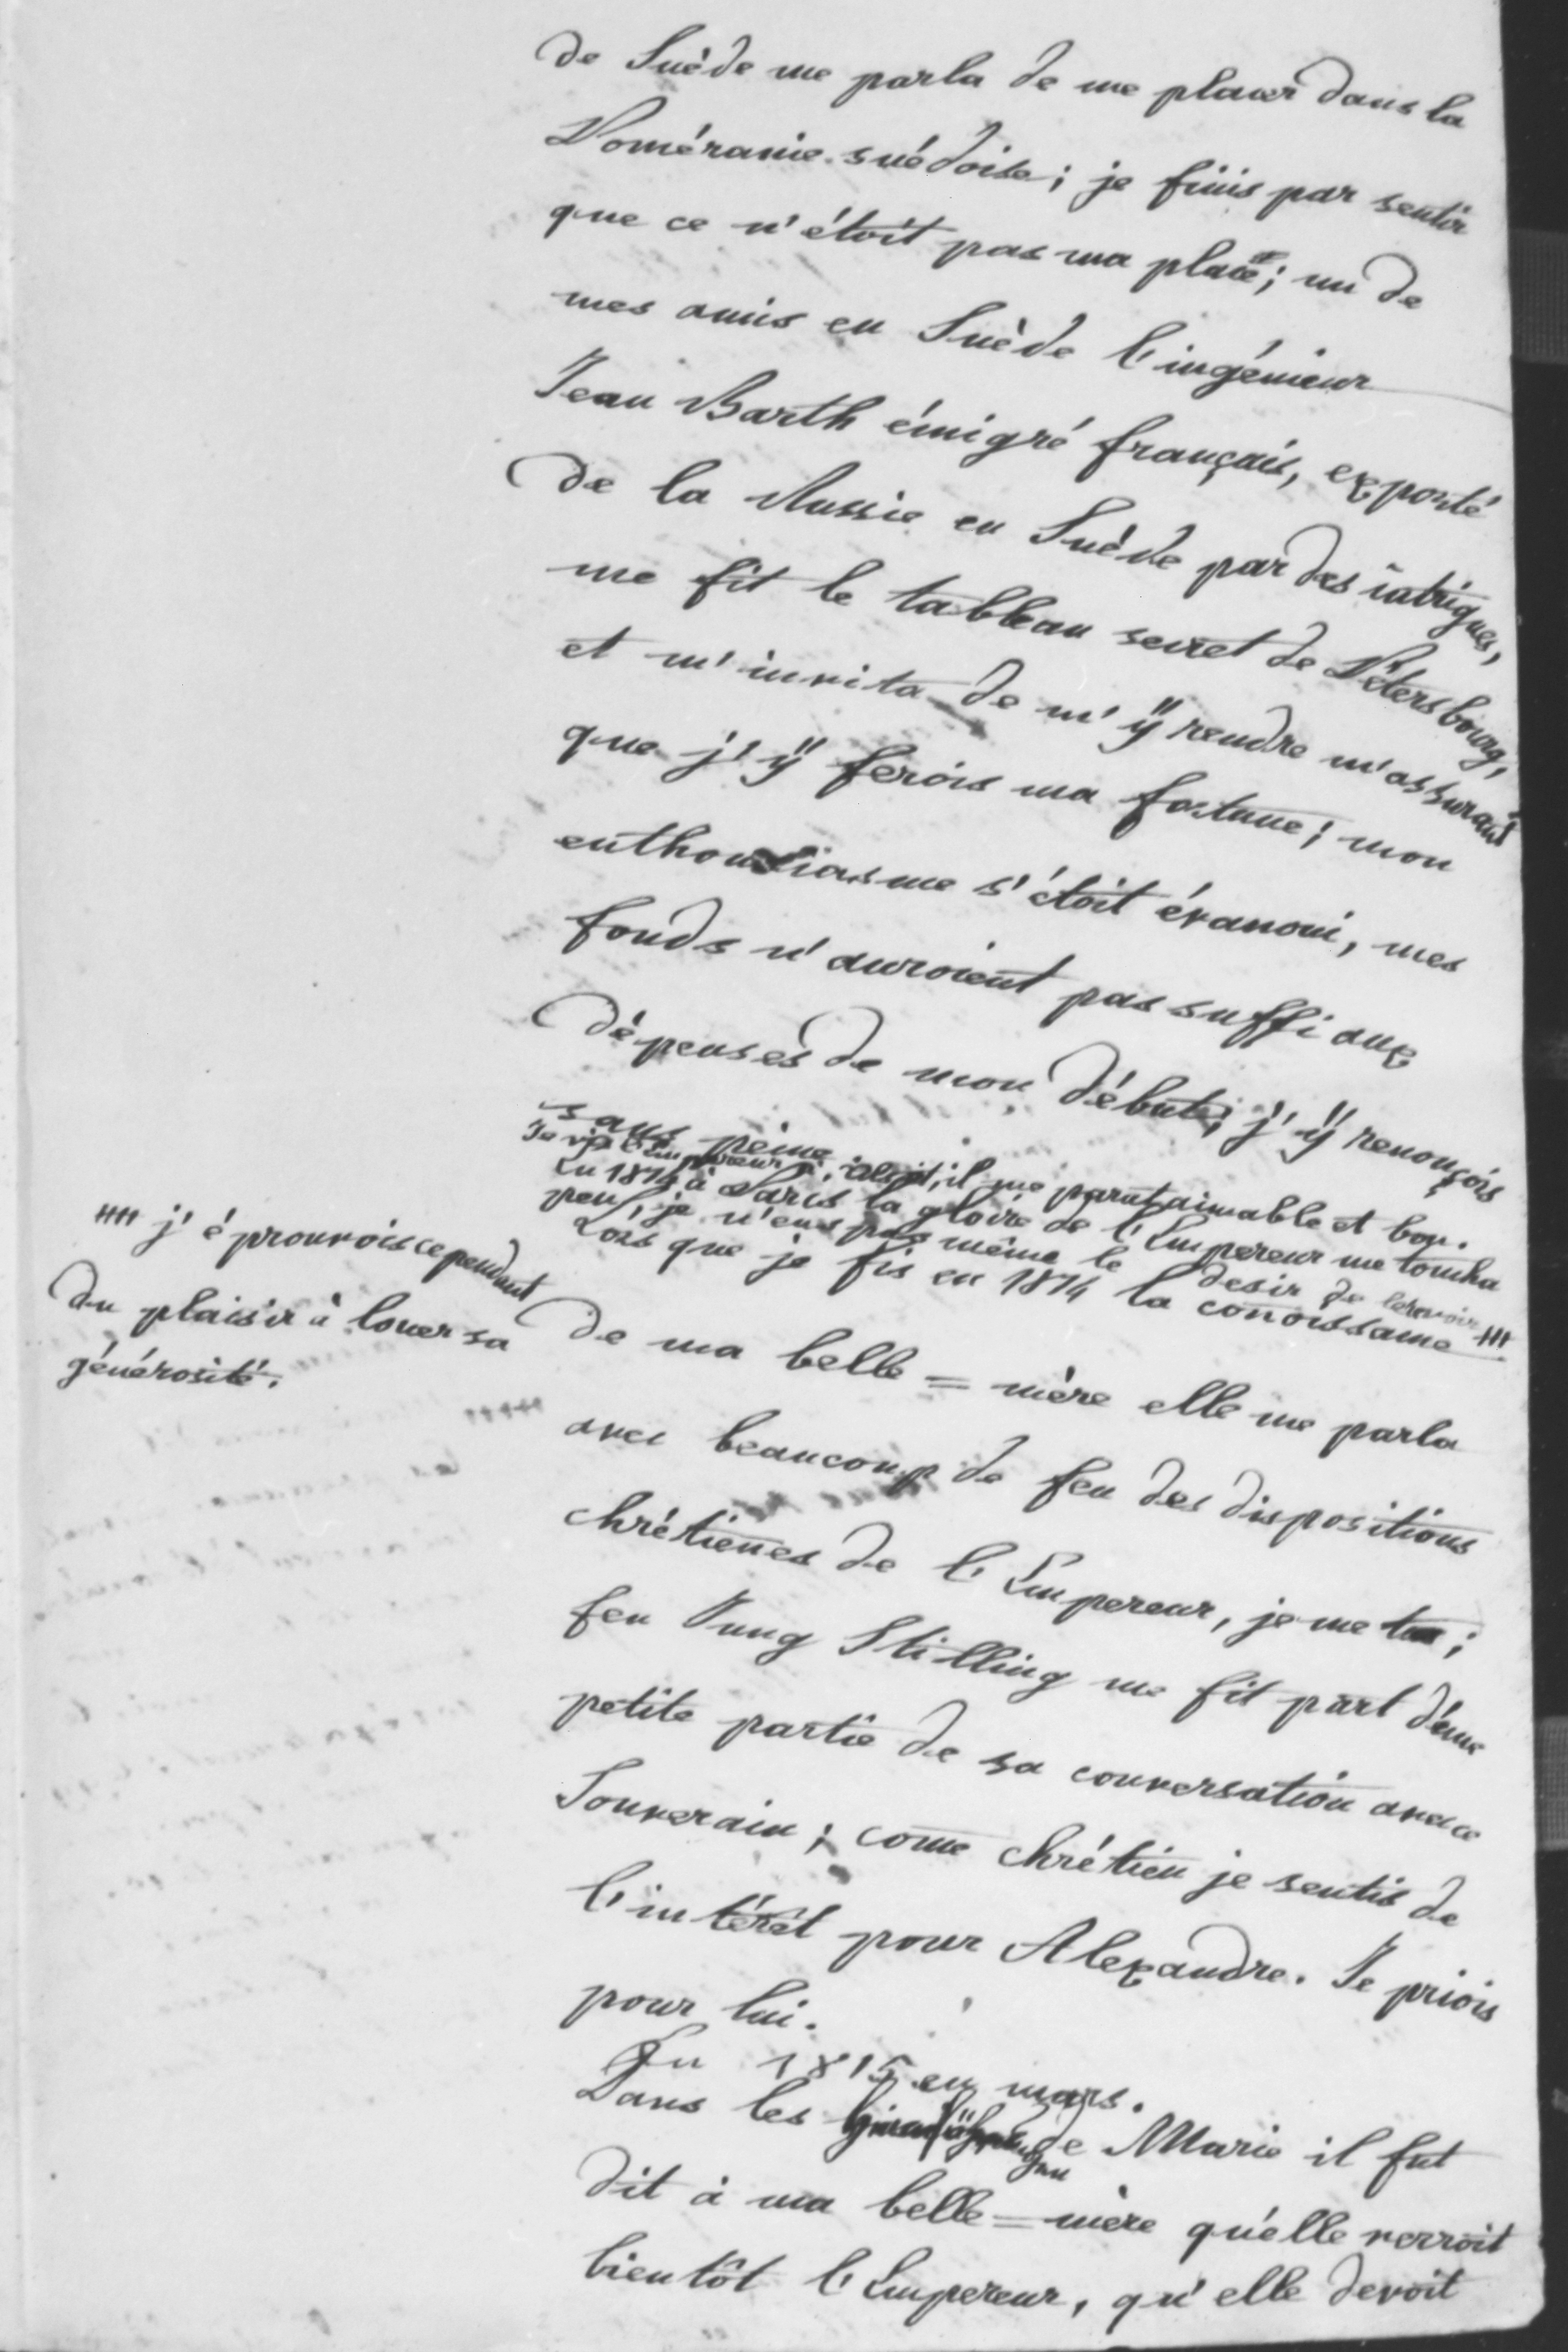 de Suède me parla de me placer dans la
Poméranie suédoise; je finis par sentir
que ce n'étoit pas ma place; un de
mes amis en Suède l'ingénieur
Jean Barth émigré français, exporté
de la Russie en Suède par des intrigues,
me fit le tableau secret de Pétersbourg,
et m'invita de m'ÿ rendre m'assurant
que j'ÿ ferois ma fortune; mon
enthousiasme s'étoit évanoui, mes
fonds n'auroient pas suffi aux
dépenses de mon début; j'ÿ renonçois
sans peine.
Je vis l'Empereur à il me parut aimable et bon.
En 1814 à Paris la gloire de l'Empereur me toucha
peu, je n'eus pas même le desir de le revoir ////
Lors que je fis en 1814 la conoissance
//// j'éprouvois cependant
du plaisir à louer sa
générosité.
de ma belle=mère elle me parla
avec beaucoup de feu des dispositions
chrétienes de l'Empereur, je me tus;
feu Jung Stilling me fit part d'une
petite partie de sa conversation avec ce
Souverain; come chrétien je sentis de
l'intérêt pour Alexandre. Je priois
pour lui.
En 1815 en mars.
Dans les de Marie il fut
dit à ma belle=mère qu'elle verroit
bientôt l'Empereur, qu'elle devoit